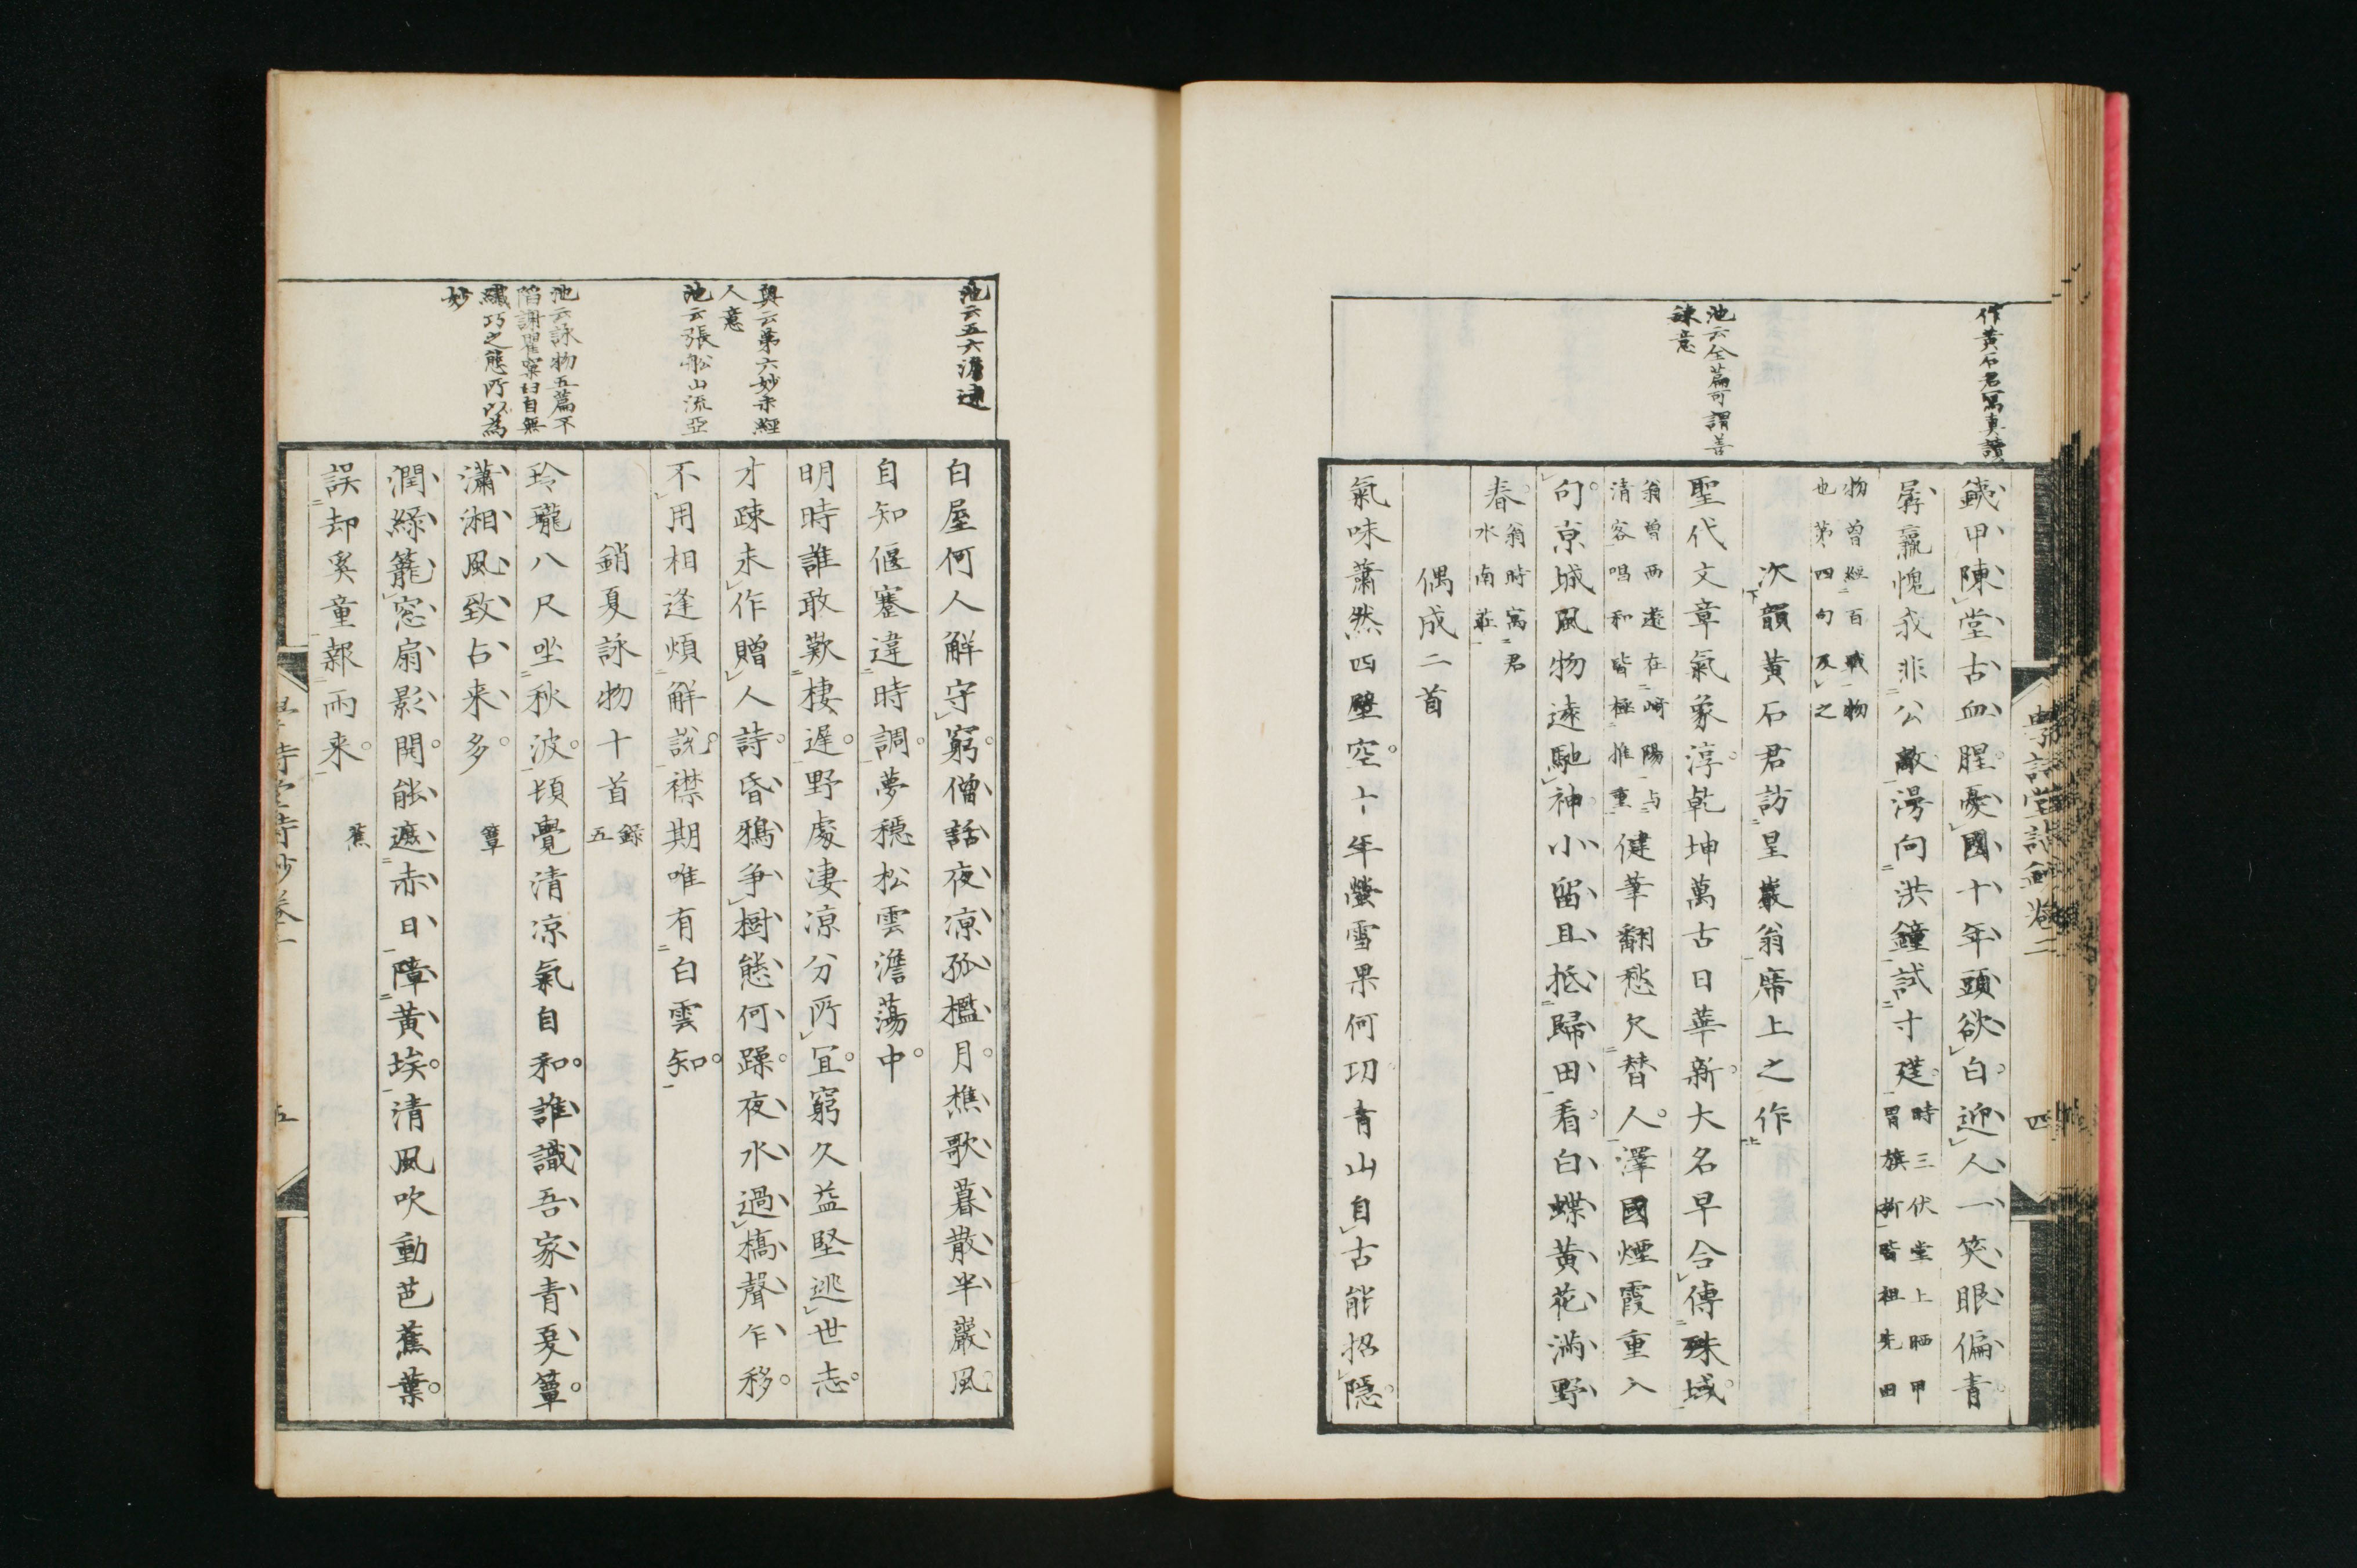 作黄石君寫真讀
池云全篇可謂善
諌意
鐵甲陳堂古血腥憂國十年頭欲白迎人一笑眼偏青
孱羸愧我非公敵漫向洪鐘試寸莛時三伏堂上晒甲
冑旗斾皆祖先田
物曾經百戰物
也第四句及之
次韻黄石君訪星巖翁席上之作
聖代文章氣象淳乾坤萬古日華新大名早合傳殊域
翁曽西遊在崎陽与
清客唱和皆極推重健筆翻愁欠替人澤國煙霞重入
句京城風物遠馳神小留且抵歸田看白蝶黄花滿野
春翁時寓君
水南莊
偶成二首
氣味蕭然四壁空十年螢雪果何功青山自古能招隱
四
池云五六澹遠
奥云第六妙未經
人意
池云張船山流亞
池云詠物五篇不
陷謝瞿窠臼自無
纖巧之態所以為
妙
白屋何人解守窮僧話夜凉孤檻月樵歌暮散半巖風
自知偃蹇違時調夢穏松雲澹蕩中
明時誰敢歎棲遅野處凄凉分所宜窮久益堅逃世志
才踈未作贈人詩昏鴉爭樹態何躁夜水過橋聲乍移
不用相逢煩解説襟期唯有白雲知
銷夏詠物十首録
五
玲瓏八尺坐秋波頓覺清凉氣自和誰識吾家青夏簟
瀟湘風致占来多 簟
潤緑籠窓扇影開能遮赤日障黄埃清風吹動芭蕉葉
誤却奚童報雨来 蕉
五